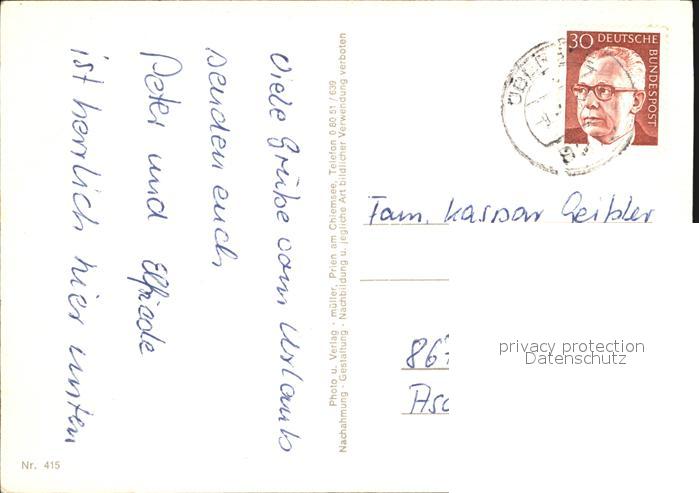 Viele Grüße vom Urlaub
senden euch
Peter und Elfriede
ist herrlich hier unten
Photo u. Verlag - müller, Prien am Chiemsee, Telefon 0 80 51 / 639
Nachahmung - Gestaltung - Nachbildung u. jegliche Art bildlicher Verwendung verboten
Nr. 415
30 DEUTSCHE
BUNDESPOST
Fam. Kaspar Geißler
867
Asc
privacy protection
Datenschutz